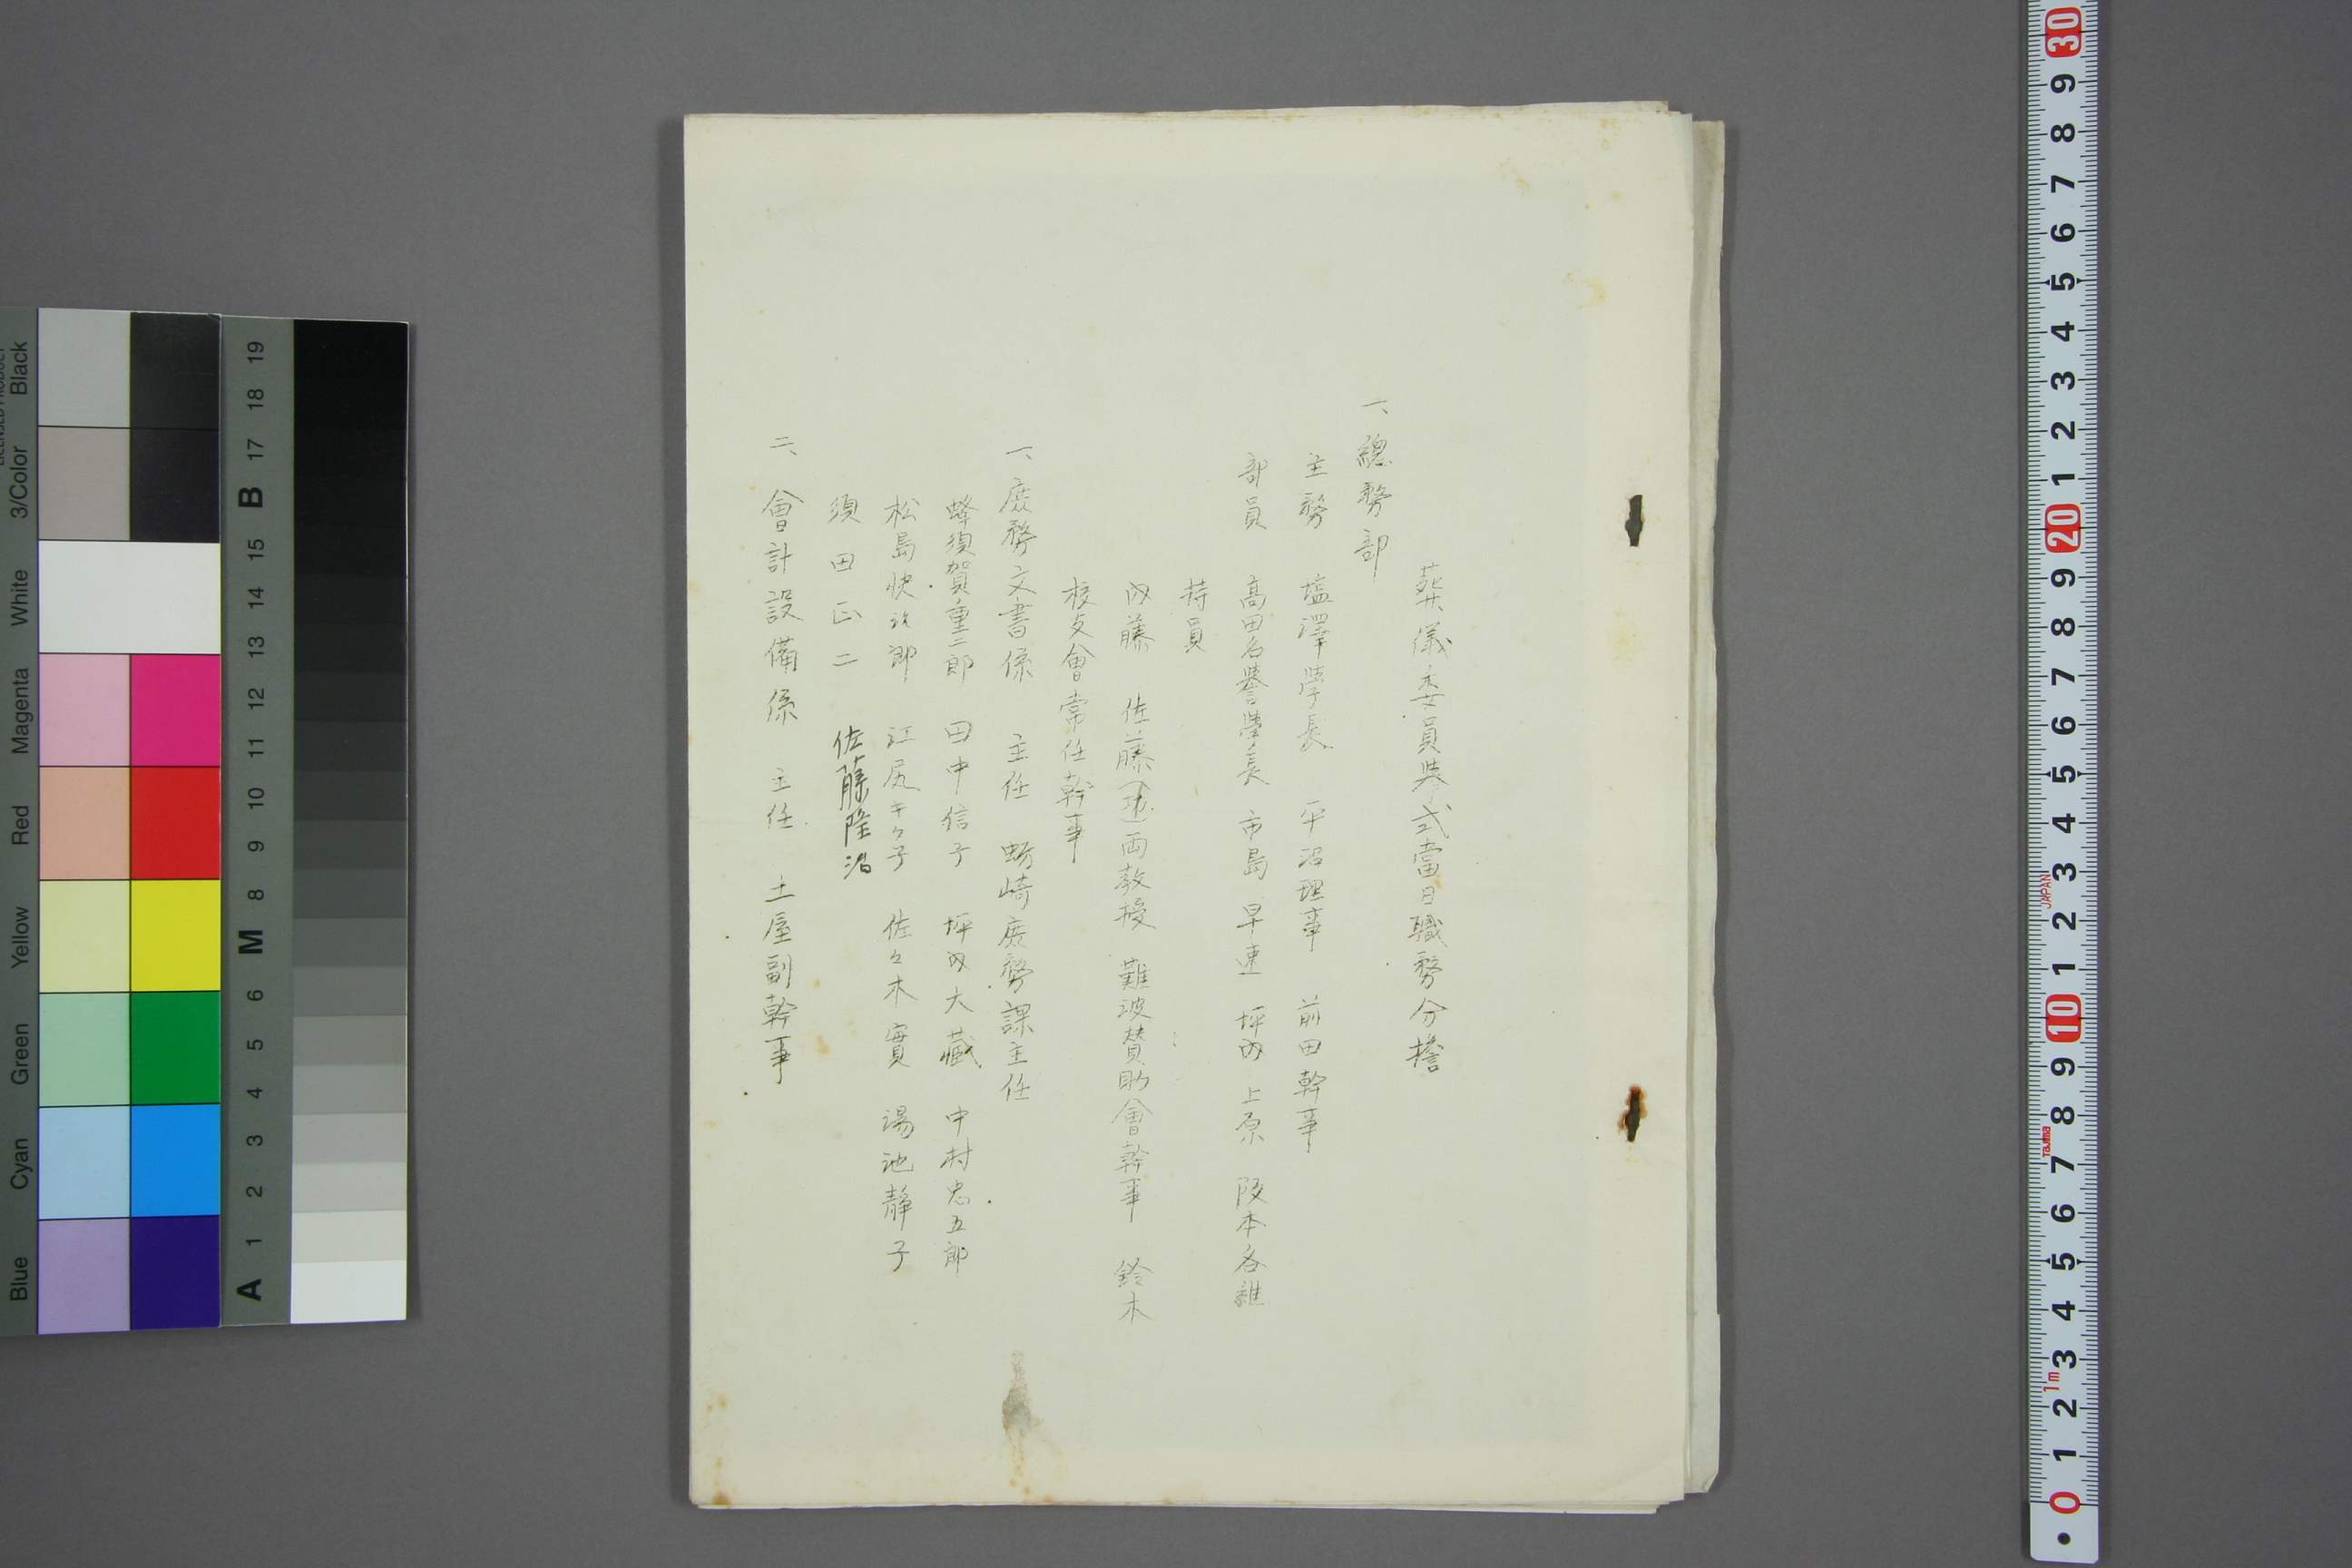 葬儀委員葬式當日職務分擔
一、總務部
主務 塩澤學長 平沼理事 前田幹事
部員 高田名譽學長 市島 早速 坪内 上原 阪本各維
持員
内藤 佐藤 両教授 難波賛助會幹事 鈴木
校友會常任幹事
一、庶務文書係 主任 蛎崎庶務課主任
蜂須賀重二郎 田中信子 坪内大藏 中村忠五郎
松島快次郎 江尻キク子 佐々木實 湯池靜子
須田正二 佐藤隆治
二、會計設備係 主任 土屋副幹事
Black
3/Color
White
Magenta
Red
Yellow
Green
Cyan
Blue
19
18
17
B
15
14
13
12
11
10
9
8
M
6
5
4
3
2
1
A
30
9
8
7
6
5
4
3
2
1
20
9
8
7
6
5
4
3
JAPAN
2
1
10
9
8
Tajima
7
6
5
4
3
1m
2
1
0